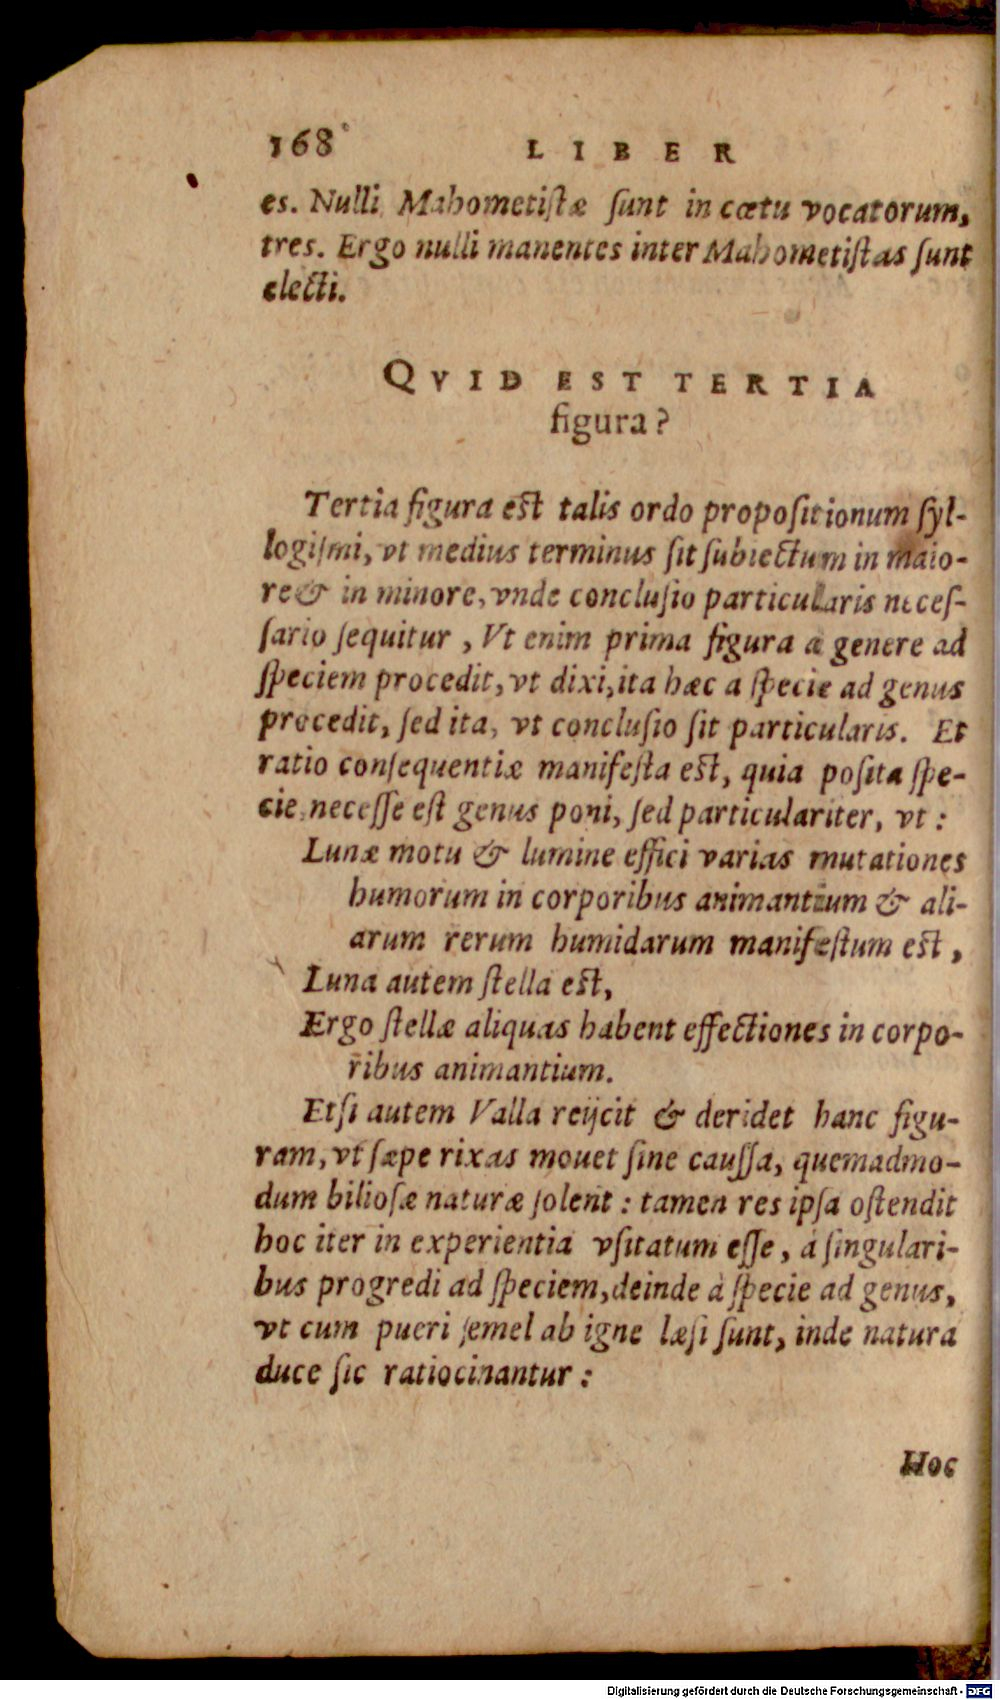 168 LIBER
es. Nulli Mahometistæ sunt in cœtu vocatorum,
tres. Ergo nulli manentes inter Mahometistas sunt
electi.
QVID EST TERTIA
figura?
Tertia figura est talis ordo propositionum syl-
logismi, vt medius terminus sit subiectum in maio-
re & in minore, vnde conclusio particularis neces-
sario sequitur, Vt enim prima figura a genere ad
speciem procedit, vt dixi, ita hæc a specie ad genus
procedit, sed ita, vt conclusio sit particularis. Et
ratio consequentiæ manifesta est, quia posita spe-
cie, necesse est genus poni, sed particulariter, vt:
Lunæ motu & lumine effici varias mutationes
humorum in corporibus animantium & ali-
arum rerum humidarum manifestum est,
Luna autem stella est,
Ergo stellæ aliquas habent effectiones in corpo-
ribus animantium.
Etsi autem Valla reijcit & deridet hanc figu-
ram, vt sæpe rixas mouet sine caussa, quemadmo-
dum biliosæ naturæ solent: tamen res ipsa ostendit
hoc iter in experientia vsitatum esse, à singulari-
bus progredi ad speciem, deinde à specie ad genus,
vt cum pueri semel ab igne læsi sunt, inde natura
duce sic ratiocinantur:
Hoc
Digitalisierung gefördert durch die Deutsche Forschungsgemeinschaft - DFG